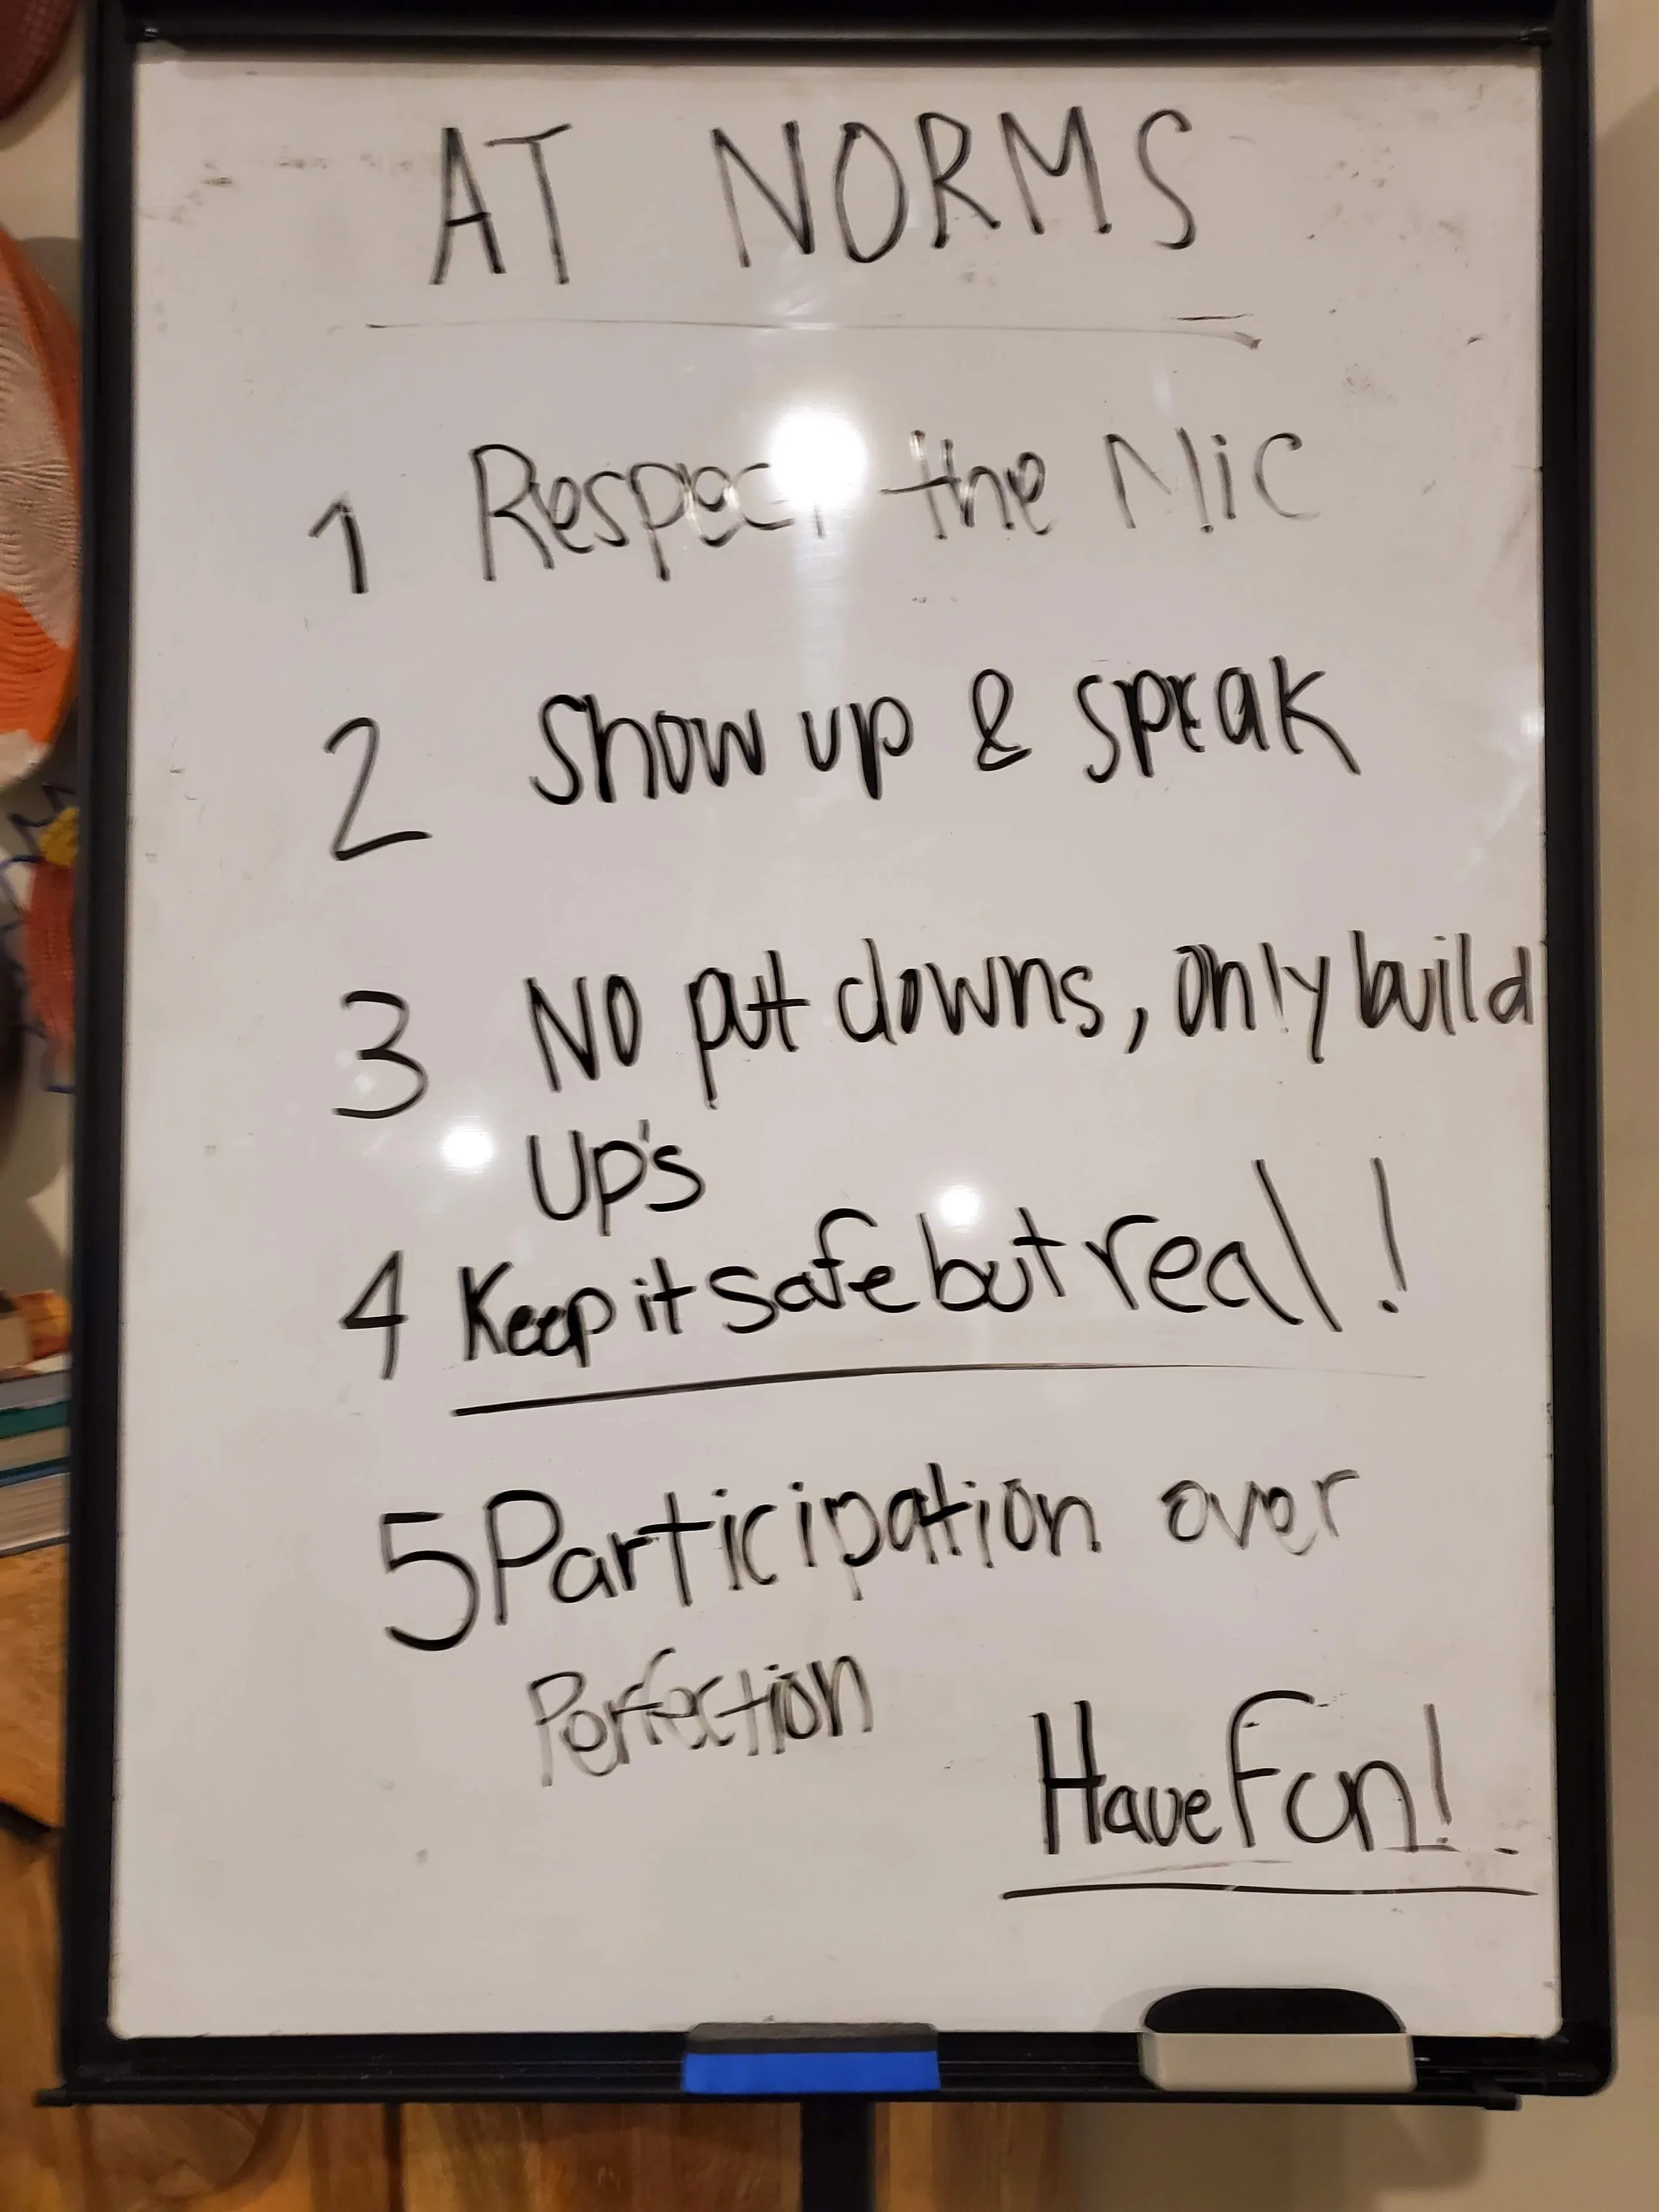 AT NORMS
1 Respect the Mic
2 Show up & speak
3 No put downs, only build
Up's
4 Keep it safe but real!
5 Participation over
Perfection
Have fun!